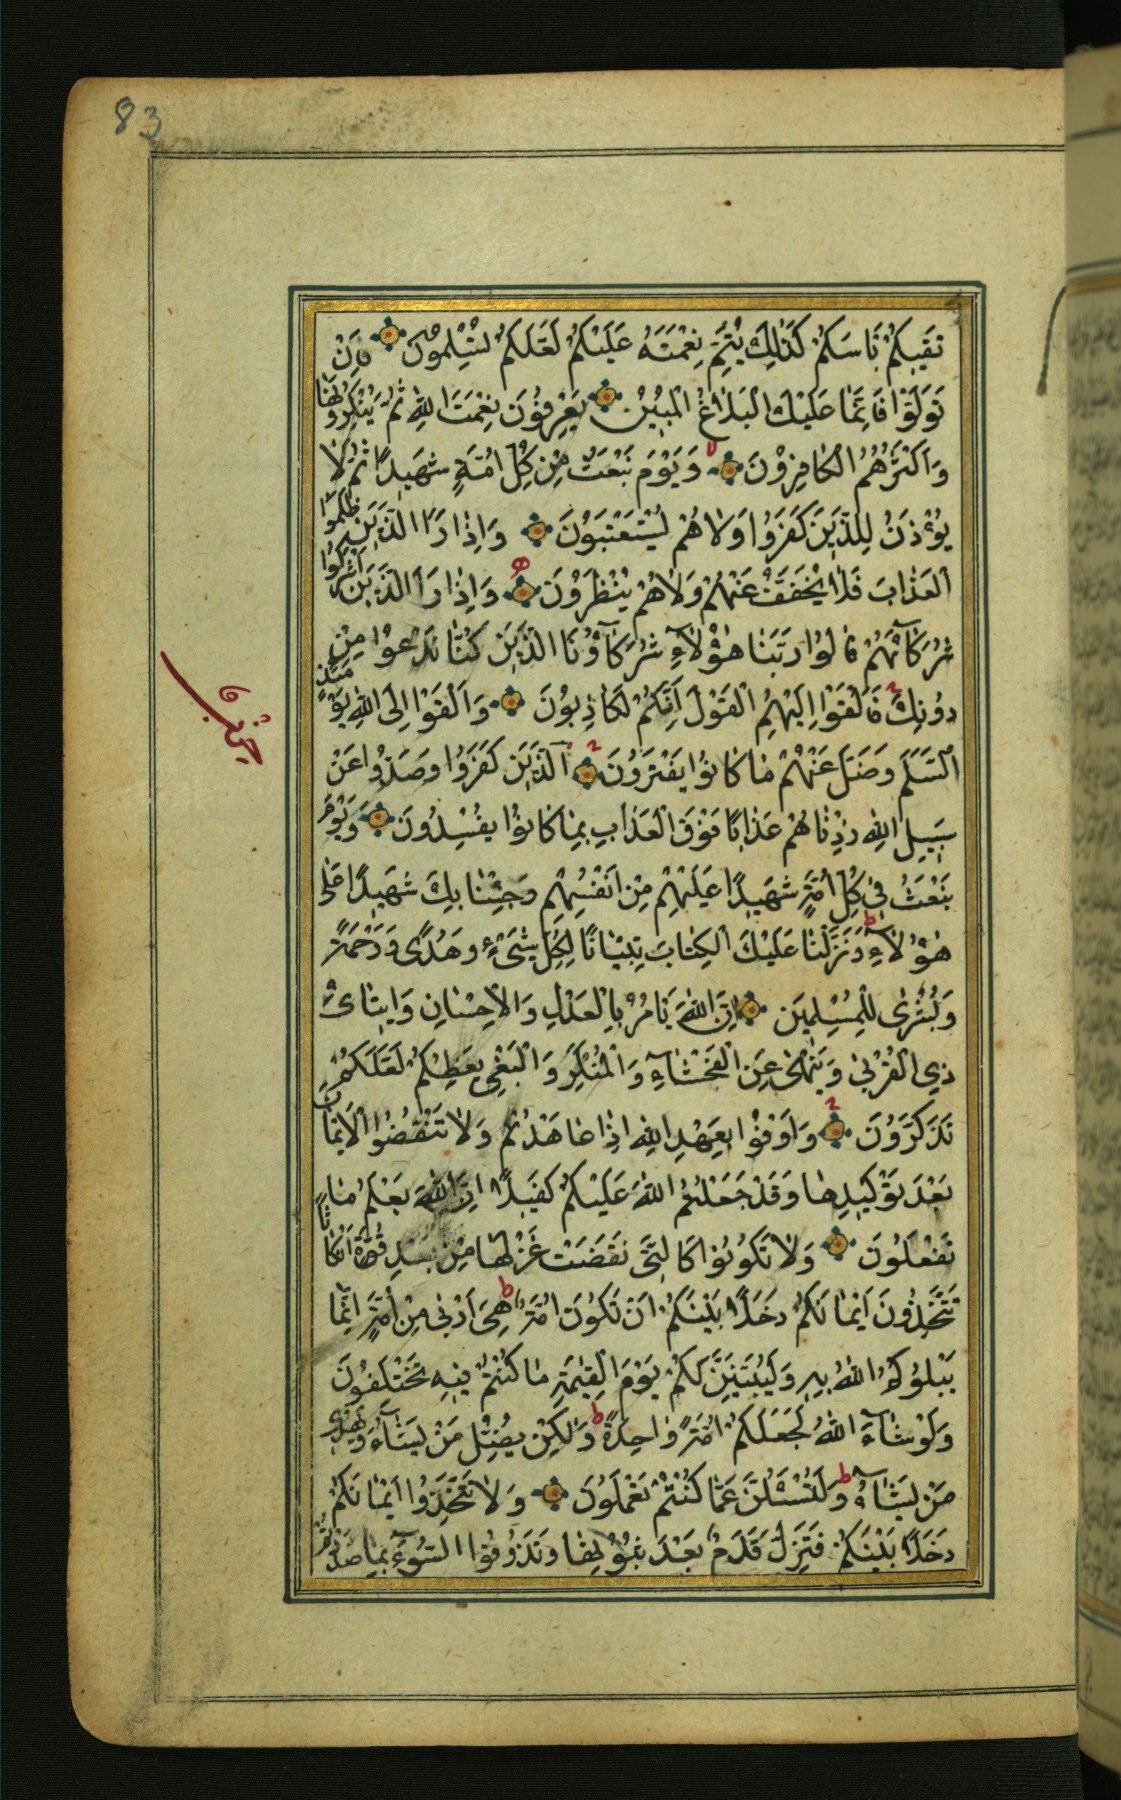 83
تَقيكُمْ بَأْسَكُمْ كَذٰلِكَ يُتِمُّ نِعْمَتَهُ عَلَيْكُمْ لَعَلَّكُمْ تُسْلِمُونَ فَاِنْ
تَوَلَّوْا فَاِنَّمٰا عَلَيْكَ الْبَلٰاغُ الْمُبينُ يَعْرِفُونَ نِعْمَتَ اللّٰهِ ثُمَّ يُنْكِرُونَهٰا
وَاَكْثَرُهُمُ الْكٰافِرُونَ وَيَوْمَ نَبْعَثُ مِنْ كُلِّ اُمَّةٍ شَهيدًا ثُمَّ لٰا
يُؤْذَنُ لِلَّذينَ كَفَرُوا وَلٰا هُمْ يُسْتَعْتَبُونَ وَاِذٰا رَاَ الَّذينَ ظَلَمُوا
الْعَذٰابَ فَلٰا يُخَفَّفُ عَنْهُمْ وَلٰا هُمْ يُنْظَرُونَ وَاِذٰا رَاَ الَّذينَ اَشْرَكُوا
شُرَكٰآءَهُمْ قٰالُوا رَبَّنٰا هٰؤُلٰآءِ شُرَكٰآؤُنَا الَّذينَ كُنّٰا نَدْعُوا مِنْ
دُونِكَ فَاَلْقَوْا اِلَيْهِمُ الْقَوْلَ اِنَّكُمْ لَكٰاذِبُونَ وَاَلْقَوْا اِلَى اللّٰهِ يَوْمَئِذٍ
السَّلَمَ وَضَلَّ عَنْهُمْ مٰا كٰانُوا يَفْتَرُونَ اَلَّذينَ كَفَرُوا وَصَدُّوا عَنْ
سَبيلِ اللّٰهِ زِدْنٰاهُمْ عَذٰابًا فَوْقَ الْعَذٰابِ بِمٰا كٰانُوا يُفْسِدُونَ وَيَوْمَ
نَبْعَثُ في كُلِّ اُمَّةٍ شَهيدًا عَلَيْهِمْ مِنْ اَنْفُسِهِمْ وَجِئْنٰا بِكَ شَهيدًا عَلٰى
هٰؤُلٰآءِ وَنَزَّلْنٰا عَلَيْكَ الْكِتٰابَ تِبْيٰانًا لِكُلِّ شَيْءٍ وَهُدًى وَرَحْمَةً
وَبُشْرٰى لِلْمُسْلِمينَ اِنَّ اللّٰهَ يَأْمُرُ بِالْعَدْلِ وَالْاِحْسٰانِ وَايتٰائِ
ذِي الْقُرْبٰى وَيَنْهٰى عَنِ الْفَحْشٰآءِ وَالْمُنْكَرِ وَالْبَغْيِ يَعِظُكُمْ لَعَلَّكُمْ
تَذَكَّرُونَ وَاَوْفُوا بِعَهْدِ اللّٰهِ اِذٰا عٰاهَدْتُمْ وَلٰا تَنْقُضُوا الْاَيْمٰانَ
بَعْدَ تَوْكيدِهٰا وَقَدْ جَعَلْتُمُ اللّٰهَ عَلَيْكُمْ كَفيلًا اِنَّ اللّٰهَ يَعْلَمُ مٰا
تَفْعَلُونَ وَلٰا تَكُونُوا كَالَّتي نَقَضَتْ غَزْلَهٰا مِنْ بَعْدِ قُوَّةٍ اَنْكٰاثًا
تَتَّخِذُونَ اَيْمٰانَكُمْ دَخَلًا بَيْنَكُمْ اَنْ تَكُونَ اُمَّةٌ هِيَ اَرْبٰى مِنْ اُمَّةٍ اِنَّمٰا
يَبْلُوكُمُ اللّٰهُ بِهِ وَلَيُبَيِّنَنَّ لَكُمْ يَوْمَ الْقِيٰمَةِ مٰا كُنْتُمْ فيهِ تَخْتَلِفُونَ
وَلَوْ شٰآءَ اللّٰهُ لَجَعَلَكُمْ اُمَّةً وٰاحِدَةً وَلٰكِنْ يُضِلُّ مَنْ يَشٰآءُ وَيَهْدي
مَنْ يَشٰآءُ وَلَتُسْئَلُنَّ عَمّٰا كُنْتُمْ تَعْمَلُونَ وَلٰا تَتَّخِذُوا اَيْمٰانَكُمْ
دَخَلًا بَيْنَكُمْ فَتَزِلَّ قَدَمٌ بَعْدَ ثُبُوتِهٰا وَتَذُوقُوا السُّوءَ بِمٰا صَدَدْتُمْ